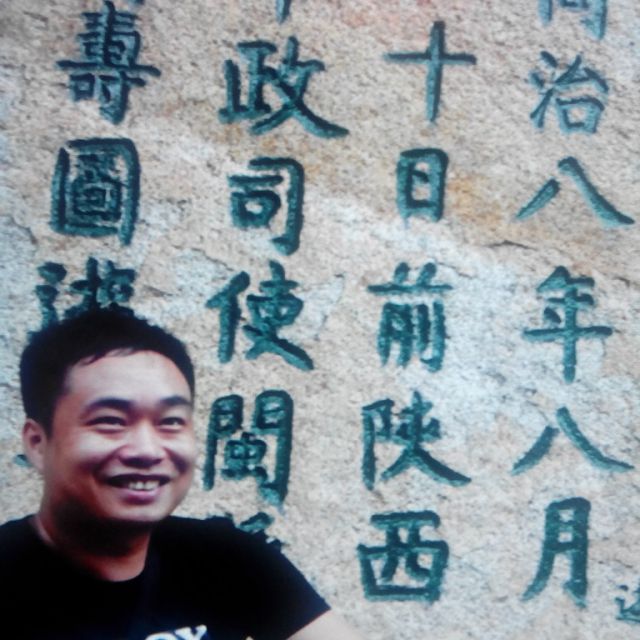 同治八年八月
十日前陝西
政司使閩
壽圖